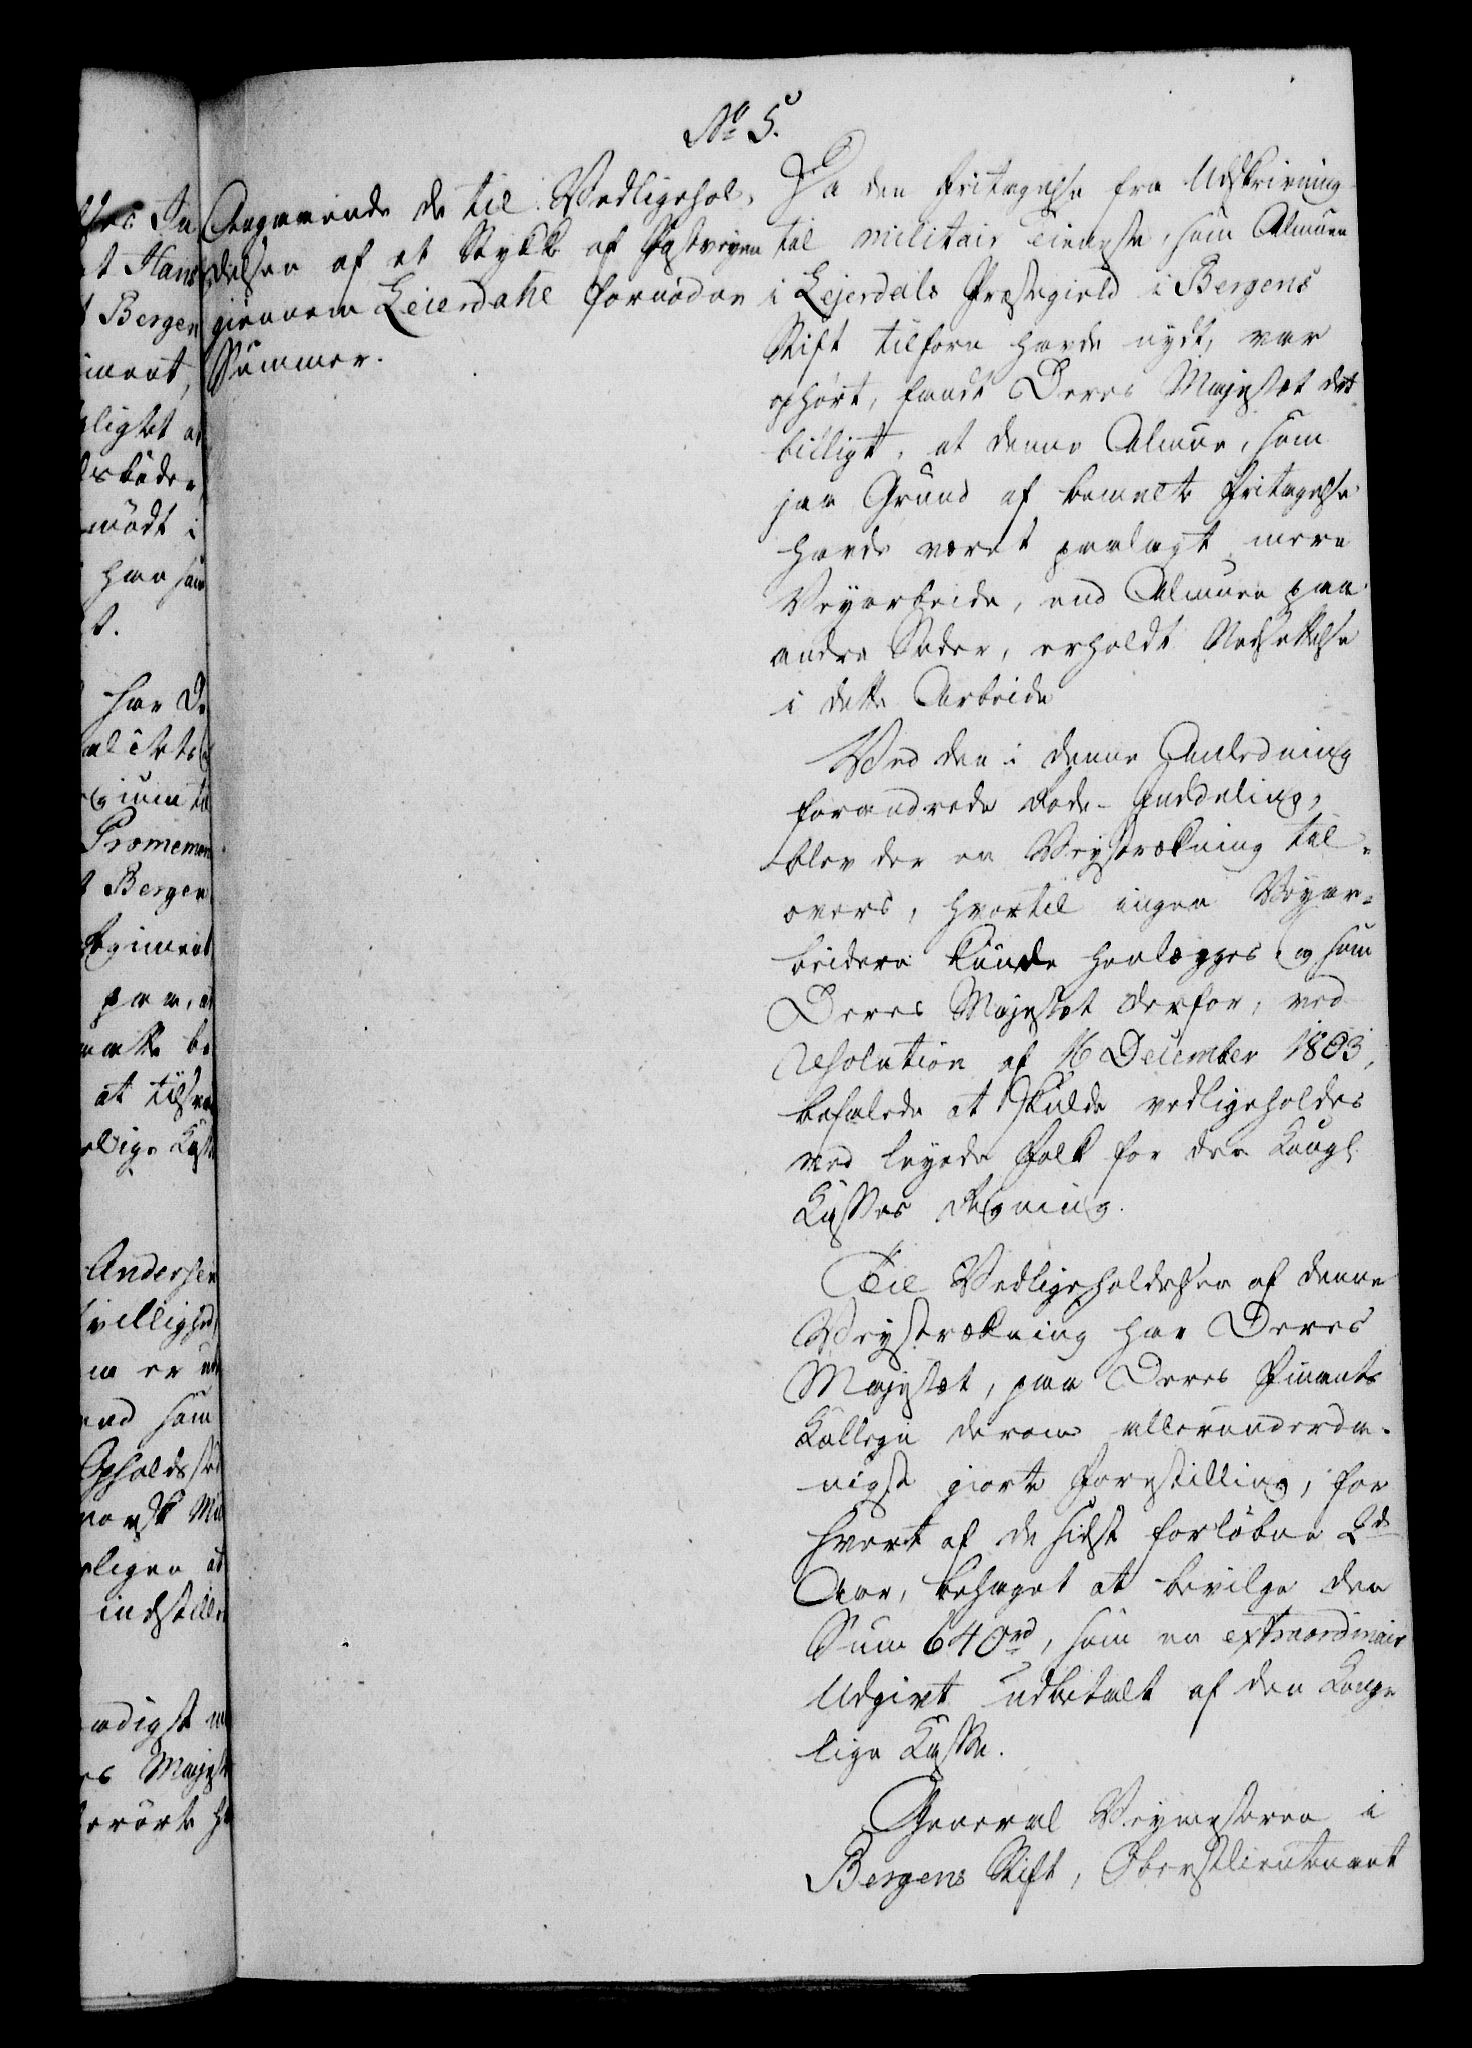 No 5.
Angaaende de til Vedligehol-
delsen af et Stykke af Postveyen
giennem Leierdahl fornödne
Summer.
Da den Fritagelse fra Udskrivning
til militair Tieneste, som Almuen
i Lejerdals Præstegield i Bergens
Stift tilforn havde nydt, var
ophört, fandt Deres Majestæt det
billigt, at denne Almue, som
paa Grund af bemelte Fritagelse
havde været paalagt mere
Veyarbeide, end Almuen paa
andre Steder, erholdt Nedsættelse
i dette Arbeide
Ved den i denne Anledning
forandrede Rode-Inddeling,
blev der en Veystrækning til-
overs, hvortil ingen Veyar-
beidere kunde henlægges og som
Deres Majestæt derfor, ved
Resolution af 16 December 1803,
befalede at skulde vedligeholdes
ved leyede Folk for den Kongl:
Kasses Regning.
Til Vedligeholdelsen af denne
Veystrækning har Deres
Majestæt, paa Deres Finants
Kollegii derom allerunderda-
nigst giorte Forestilling, for
hvert af de sidst forløbne 2de
Aar, behaget at bevilge den
Sum 640 rd, som en extraordinair
Udgivt udbetalt af den Konge
lige Kasse.
General Veymesteren i
Bergens Stift, Oberstlieutenant